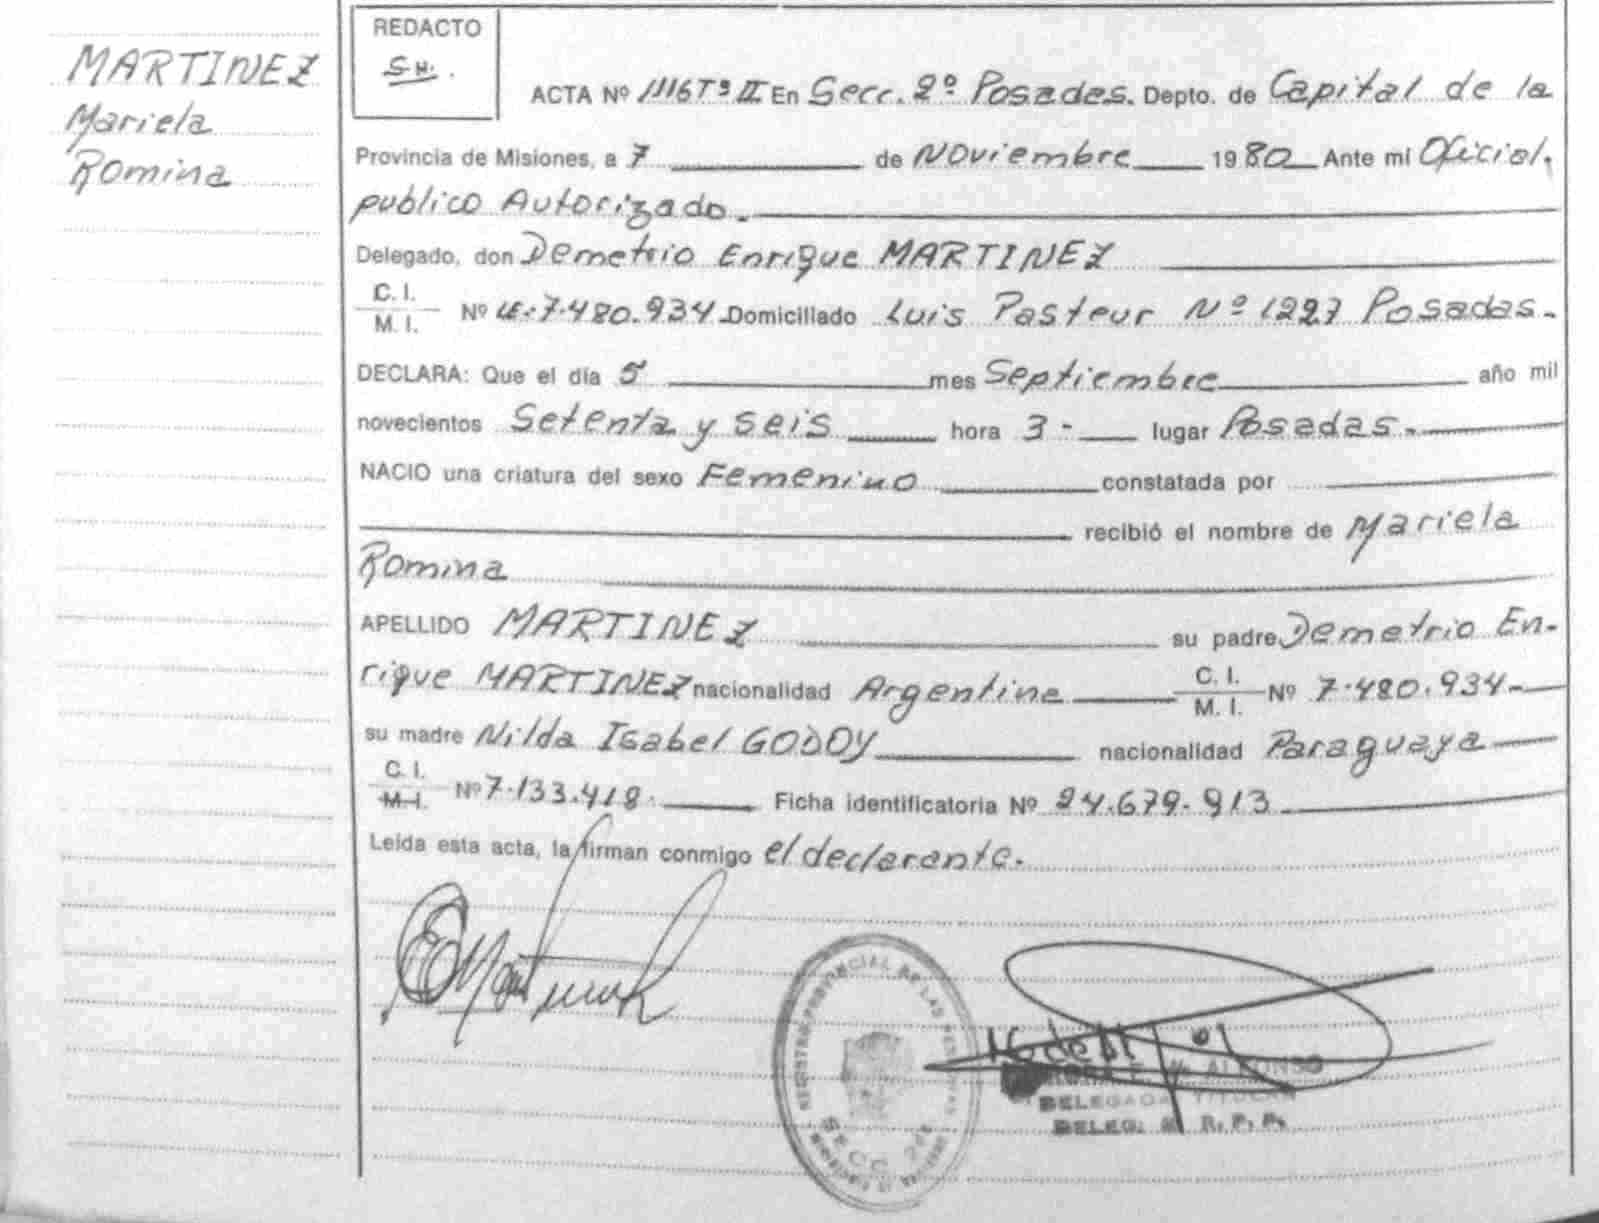 MARTINEZ
Mariela
Romina
REDACTO
S.H.
ACTA Nº 1116 Tº II En Secc. 2º Posadas. Depto. de Capital de la
Provincia de Misiones, a 7 de Noviembre 1980 Ante mi Oficial
publico Autorizado.
Delegado, don Demetrio Enrique MARTINEZ
C. I.
M. I. Nº LE. 7.480.934 Domiciliado Luis Pasteur Nº 1227 Posadas.
DECLARA: Que el día 5 mes Septiembre año mil
novecientos Setenta y Seis hora 3 - lugar Posadas.
NACIO una criatura del sexo Femenino constatada por
recibió el nombre de Mariela
Romina
APELLIDO MARTINEZ su padre Demetrio En-
rique MARTINEZ nacionalidad Argentina C. I. M. I. Nº 7.480.934-
su madre Nilda Isabel GODOY nacionalidad Paraguaya
C. I.
M. I. Nº 7.133.418. Ficha identificatoria Nº 24.679.913
Leída esta acta, la firman conmigo el declarante.
REGISTRO PROVINCIAL DE LAS PERSONAS
SECC 2da
ALFONSO
DELEGADA TITULAR
DELEG. R. P. P.